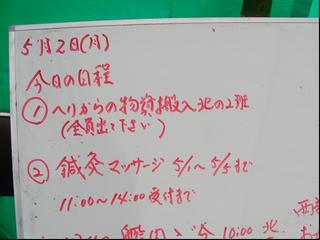 5月2日(月)
今日の日程
① ヘリからの物資搬入 北の2班
(全員出て下さい)
② 鍼灸マッサージ 5/1〜5/5まで
11:00〜14:00 受付まで
10:00 北